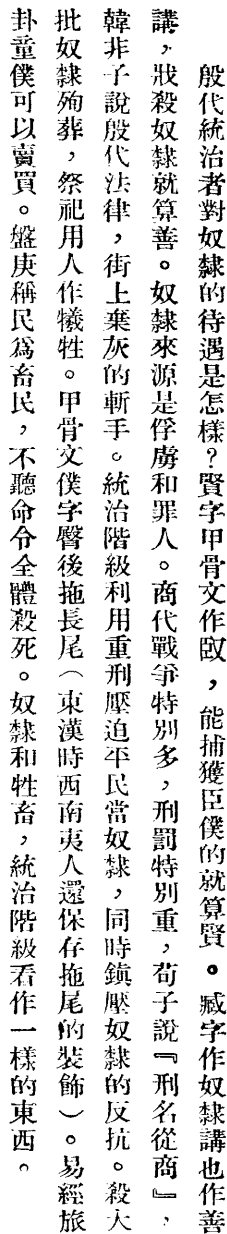 殷代統治者對奴隸的待遇是怎樣?賢字甲骨文作臤,能捕獲臣僕的就算賢。臧字作奴隸講也作善
講,戕殺奴隸就算善。奴隸來源是俘虜和罪人。商代戰爭特別多,刑罰特別重,荀子說『刑名從商』,
韓非子說殷代法律,街上棄灰的斬手。統治階級利用重刑壓迫平民當奴隸,同時鎮壓奴隸的反抗。殺大
批奴隸殉葬,祭祀用人作犧牲。甲骨文僕字臀後拖長尾(東漢時西南夷人還保存拖尾的裝飾)。易經旅
卦童僕可以賣買。盤庚稱民爲畜民,不聽命令全體殺死。奴隸和牲畜,統治階級看作一樣的東西。